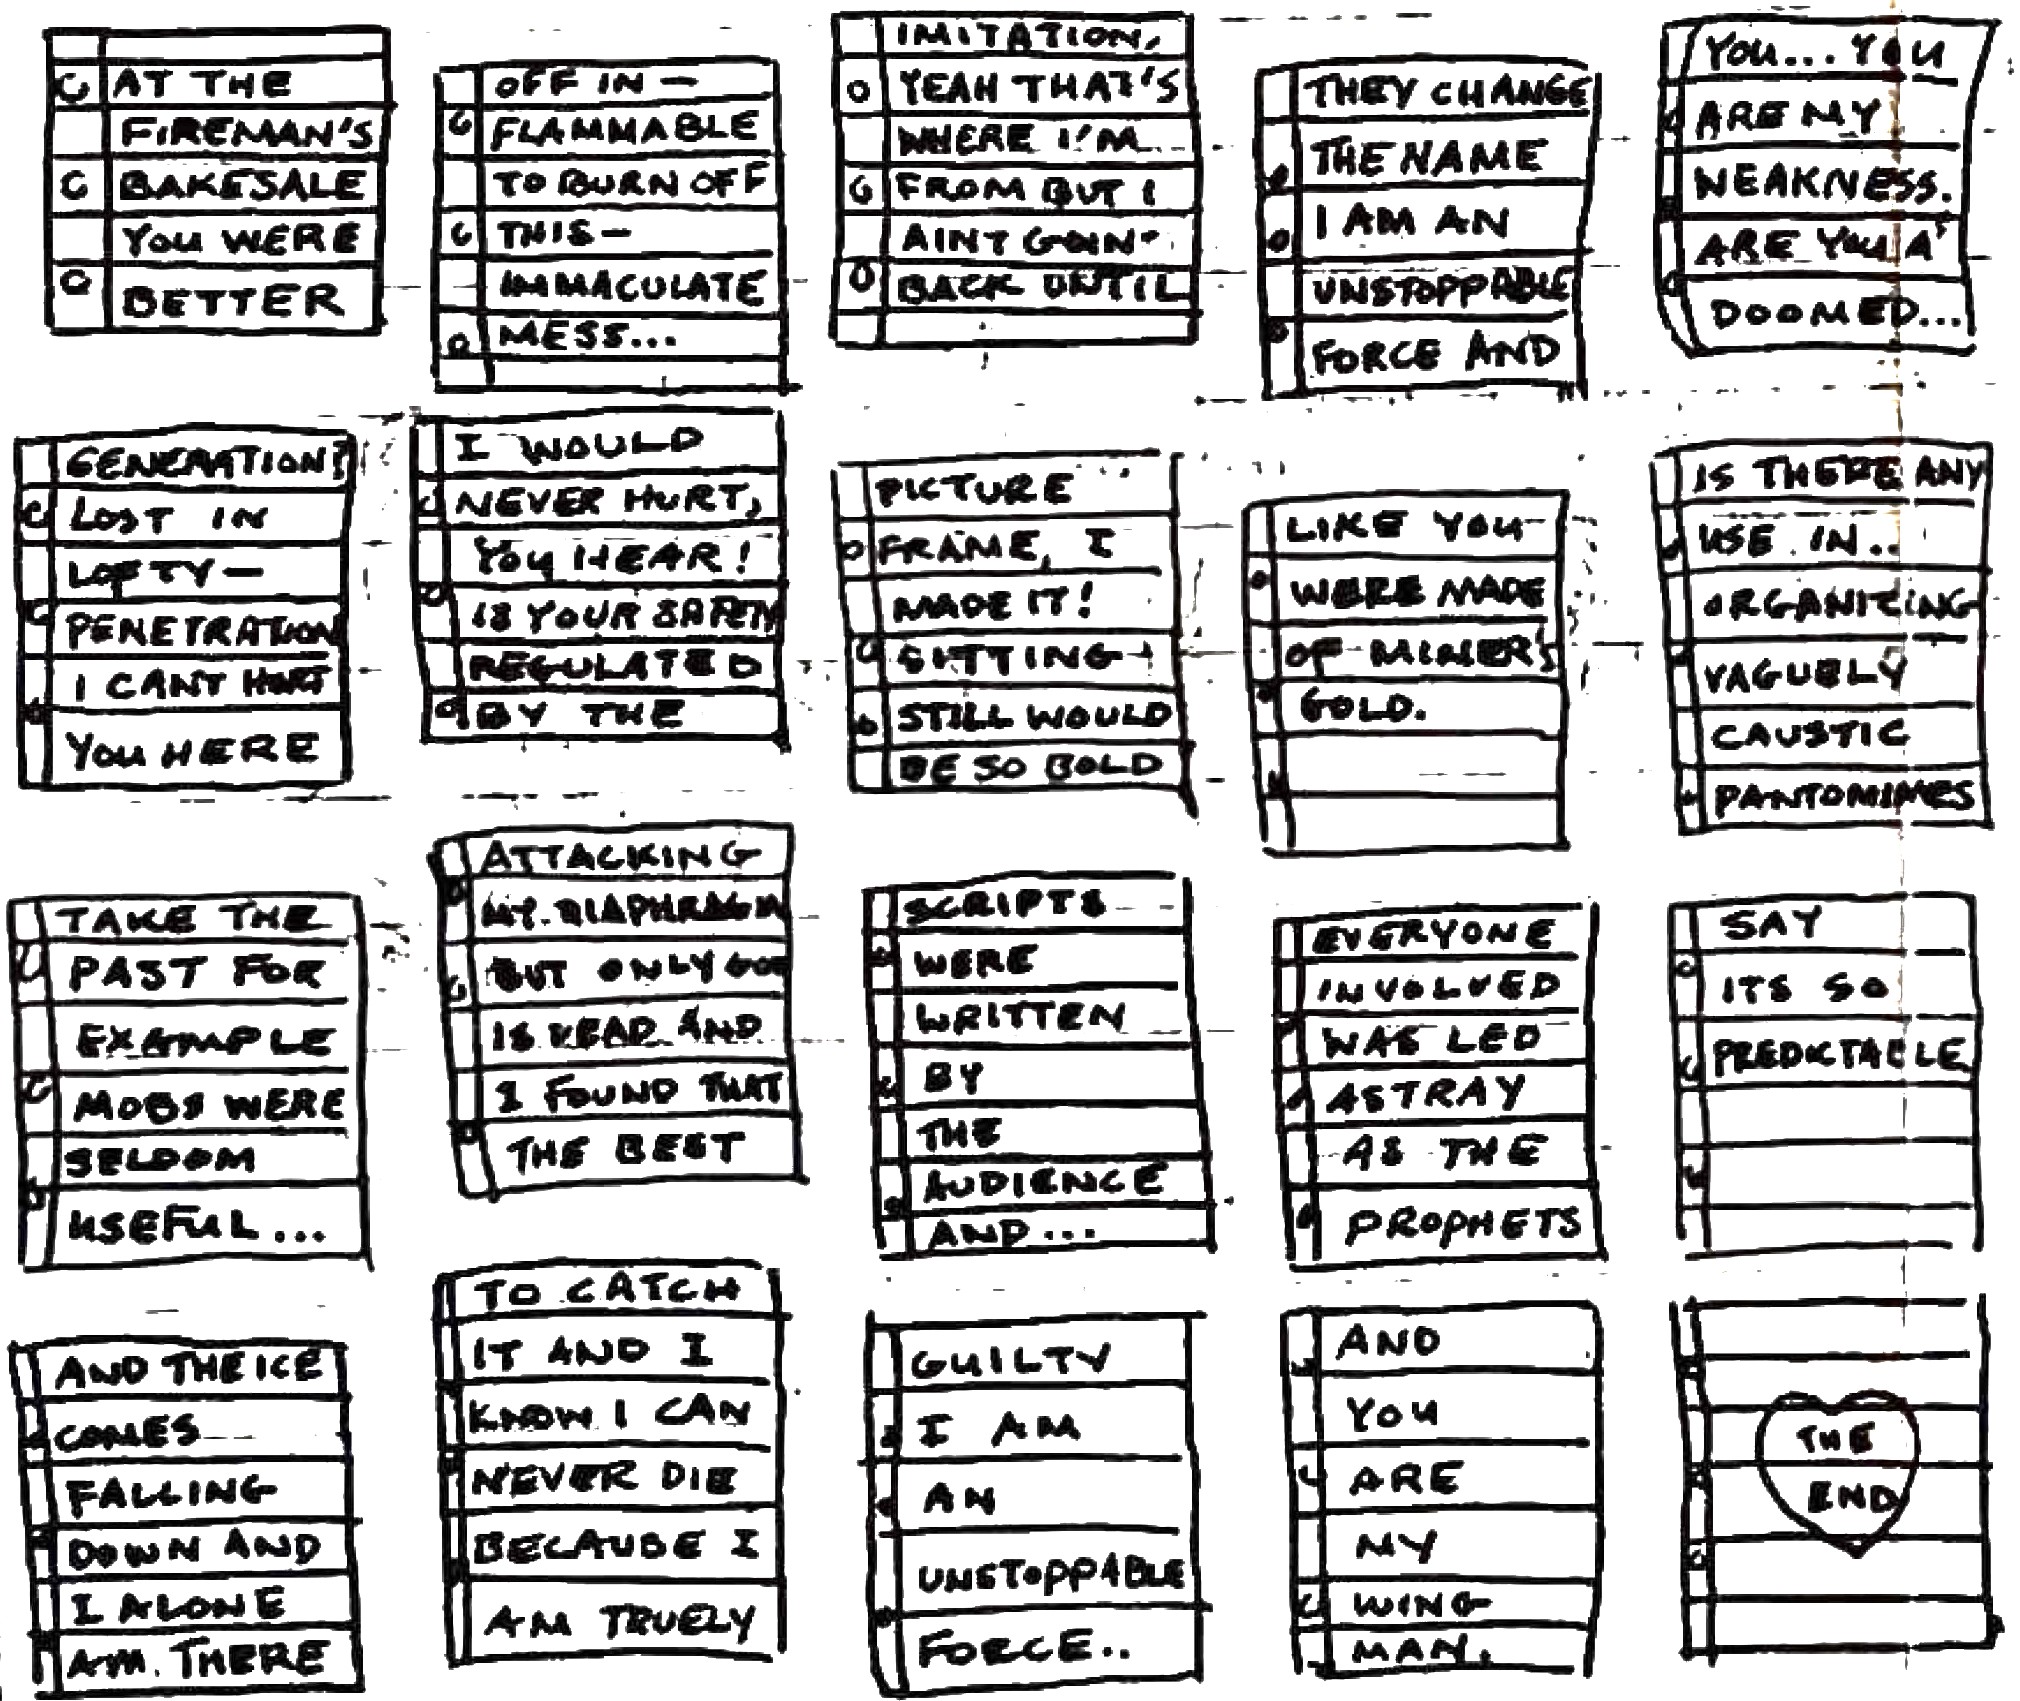 AT THE
FIREMAN'S
BAKESALE
YOU WERE
BETTER
OFF IN –
FLAMMABLE
TO BURN OFF
THIS –
IMMACULATE
MESS...
IMITATION,
YEAH THAT'S
WHERE I'M
FROM BUT I
AINT GOIN'
BACK UNTIL
THEY CHANGE
THE NAME
I AM AN
UNSTOPPABLE
FORCE AND
YOU... YOU
ARE MY
WEAKNESS.
ARE YOU A
DOOMED...
GENERATION?
LOST IN
LOFTY –
PENETRATION
I CANT HURT
YOU HERE
I WOULD
NEVER HURT,
YOU HEAR!
IS YOUR SAFETY
REGULATED
BY THE
PICTURE
FRAME, I
MADE IT!
SITTING
STILL WOULD
BE SO BOLD
LIKE YOU
WERE MADE
OF MINER'S
GOLD.
IS THERE ANY
USE IN..
ORGANIZING
VAGUELY
CAUSTIC
PANTOMIMES
TAKE THE
PAST FOR
EXAMPLE
MOBS WERE
SELDOM
USEFUL...
ATTACKING
MY DIAPHRAGM
BUT ONLY GOD
IS DEAD AND
I FOUND THAT
THE BEST
SCRIPTS
WERE
WRITTEN
BY
THE
AUDIENCE
AND...
EVERYONE
INVOLVED
WAS LED
ASTRAY
AS THE
PROPHETS
SAY
ITS SO
PREDICTABLE
AND THE ICE
COMES
FALLING
DOWN AND
I ALONE
AM THERE
TO CATCH
IT AND I
KNOW I CAN
NEVER DIE
BECAUSE I
AM TRUELY
GUILTY
I AM
AN
UNSTOPPABLE
FORCE..
AND
YOU
ARE
MY
WING
MAN.
THE
END